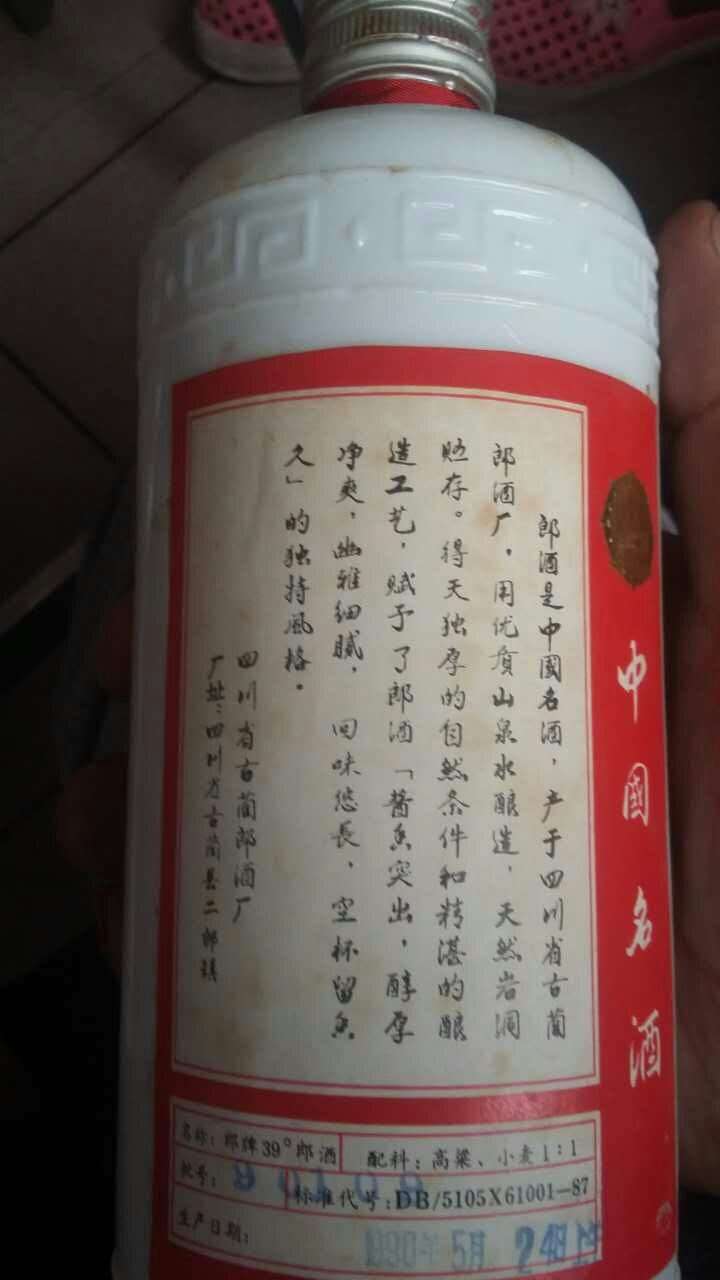 郎酒是中國名酒，产于四川省古蔺
郎酒厂，用优质山泉水酿造，天然岩洞
贮存。得天独厚的自然条件和精湛的酿
造工艺，赋予了郎酒「酱香突出，醇厚
净爽，幽雅细腻，回味悠長，空杯留香
久」的独持风格。
四川省古蔺郎酒厂
厂址：四川省古蔺县二郎镇
中國名酒
名称：郎牌39°郎酒 配料：高粱、小麦1：1
批号： 标准代号：DB/5105X61001—87
生产日期： 1990年5月24日